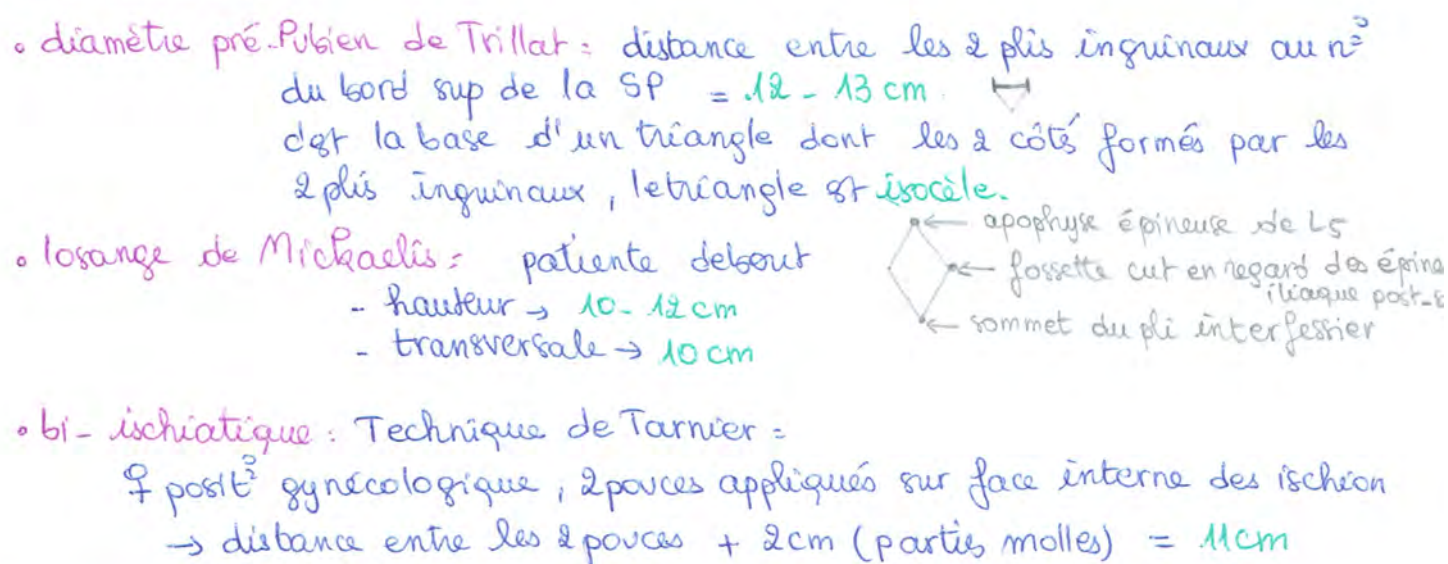 • diamètre pré-Pubien de Trillat : distance entre les 2 plis inguinaux au n²
du bord sup de la SP = 12 - 13 cm
c'est la base d'un triangle dont les 2 côté formés par les
2 plis inguinaux, le triangle est isocèle.
• losange de Mickaelis : patiente debout
- hauteur → 10 - 12 cm
- transversale → 10 cm
← apophyse épineuse de L5
← fossette cut en regard des épine
iliaque post-s
← sommet du pli interfessier
• bi-ischiatique : Technique de Tarnier =
♀ posit² gynécologique, 2 pouces appliqués sur face interne des ischion
→ distance entre les 2 pouces + 2cm (partis molles) = 11cm